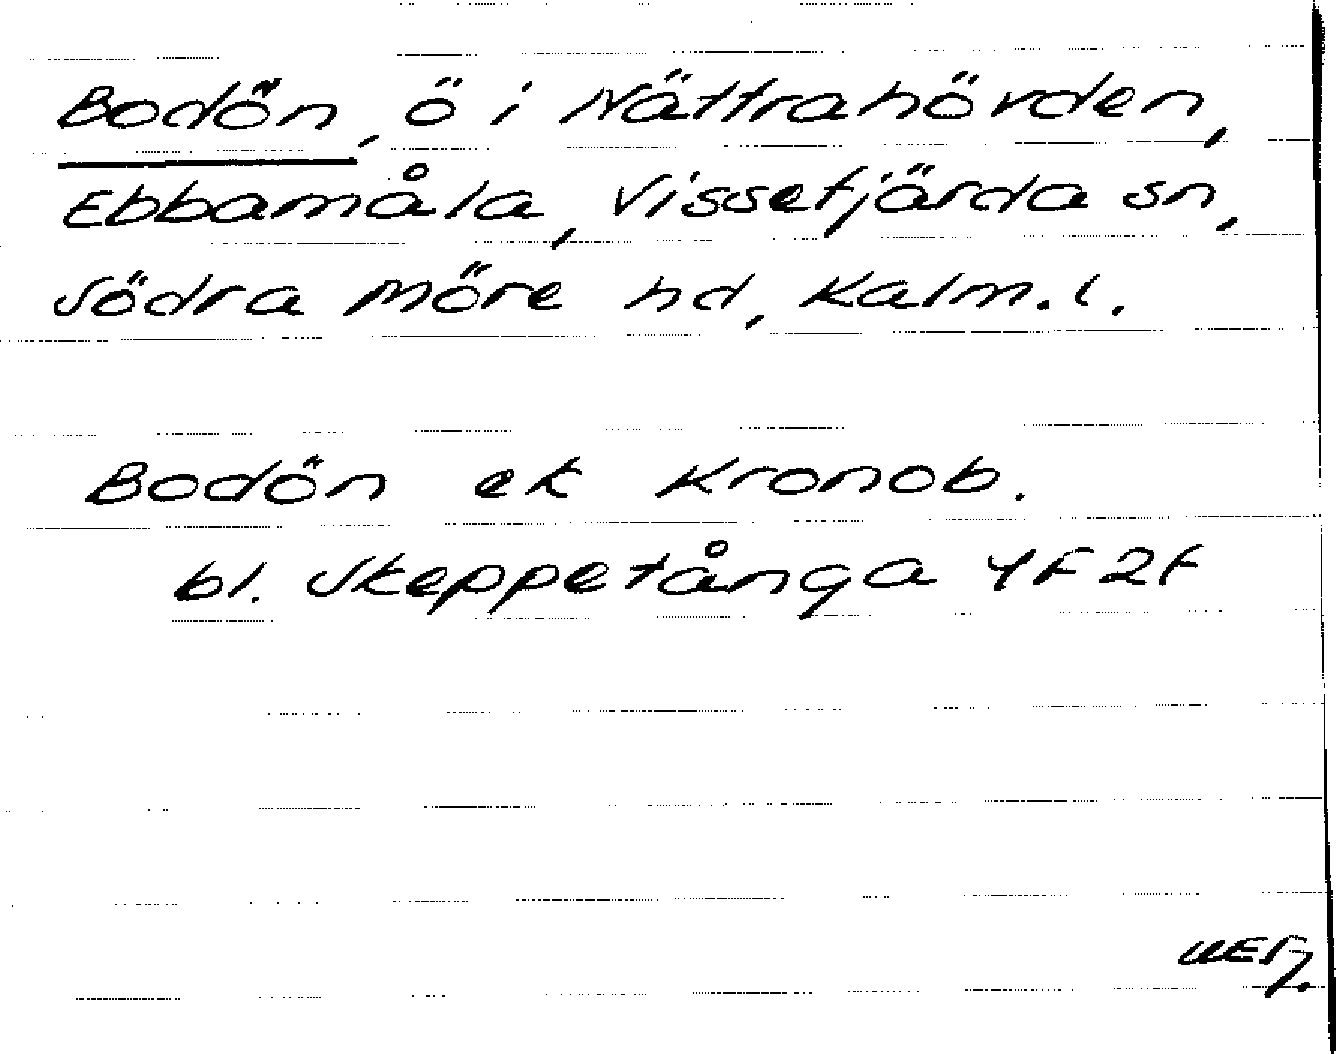 Bodön, ö i Nättrahörden,
Ebbamåla, Vissefjärda sn,
Södra Möre hd, Kalm. l.
Bodön ek Kronob.
bl. Skeppetånga 4F2f